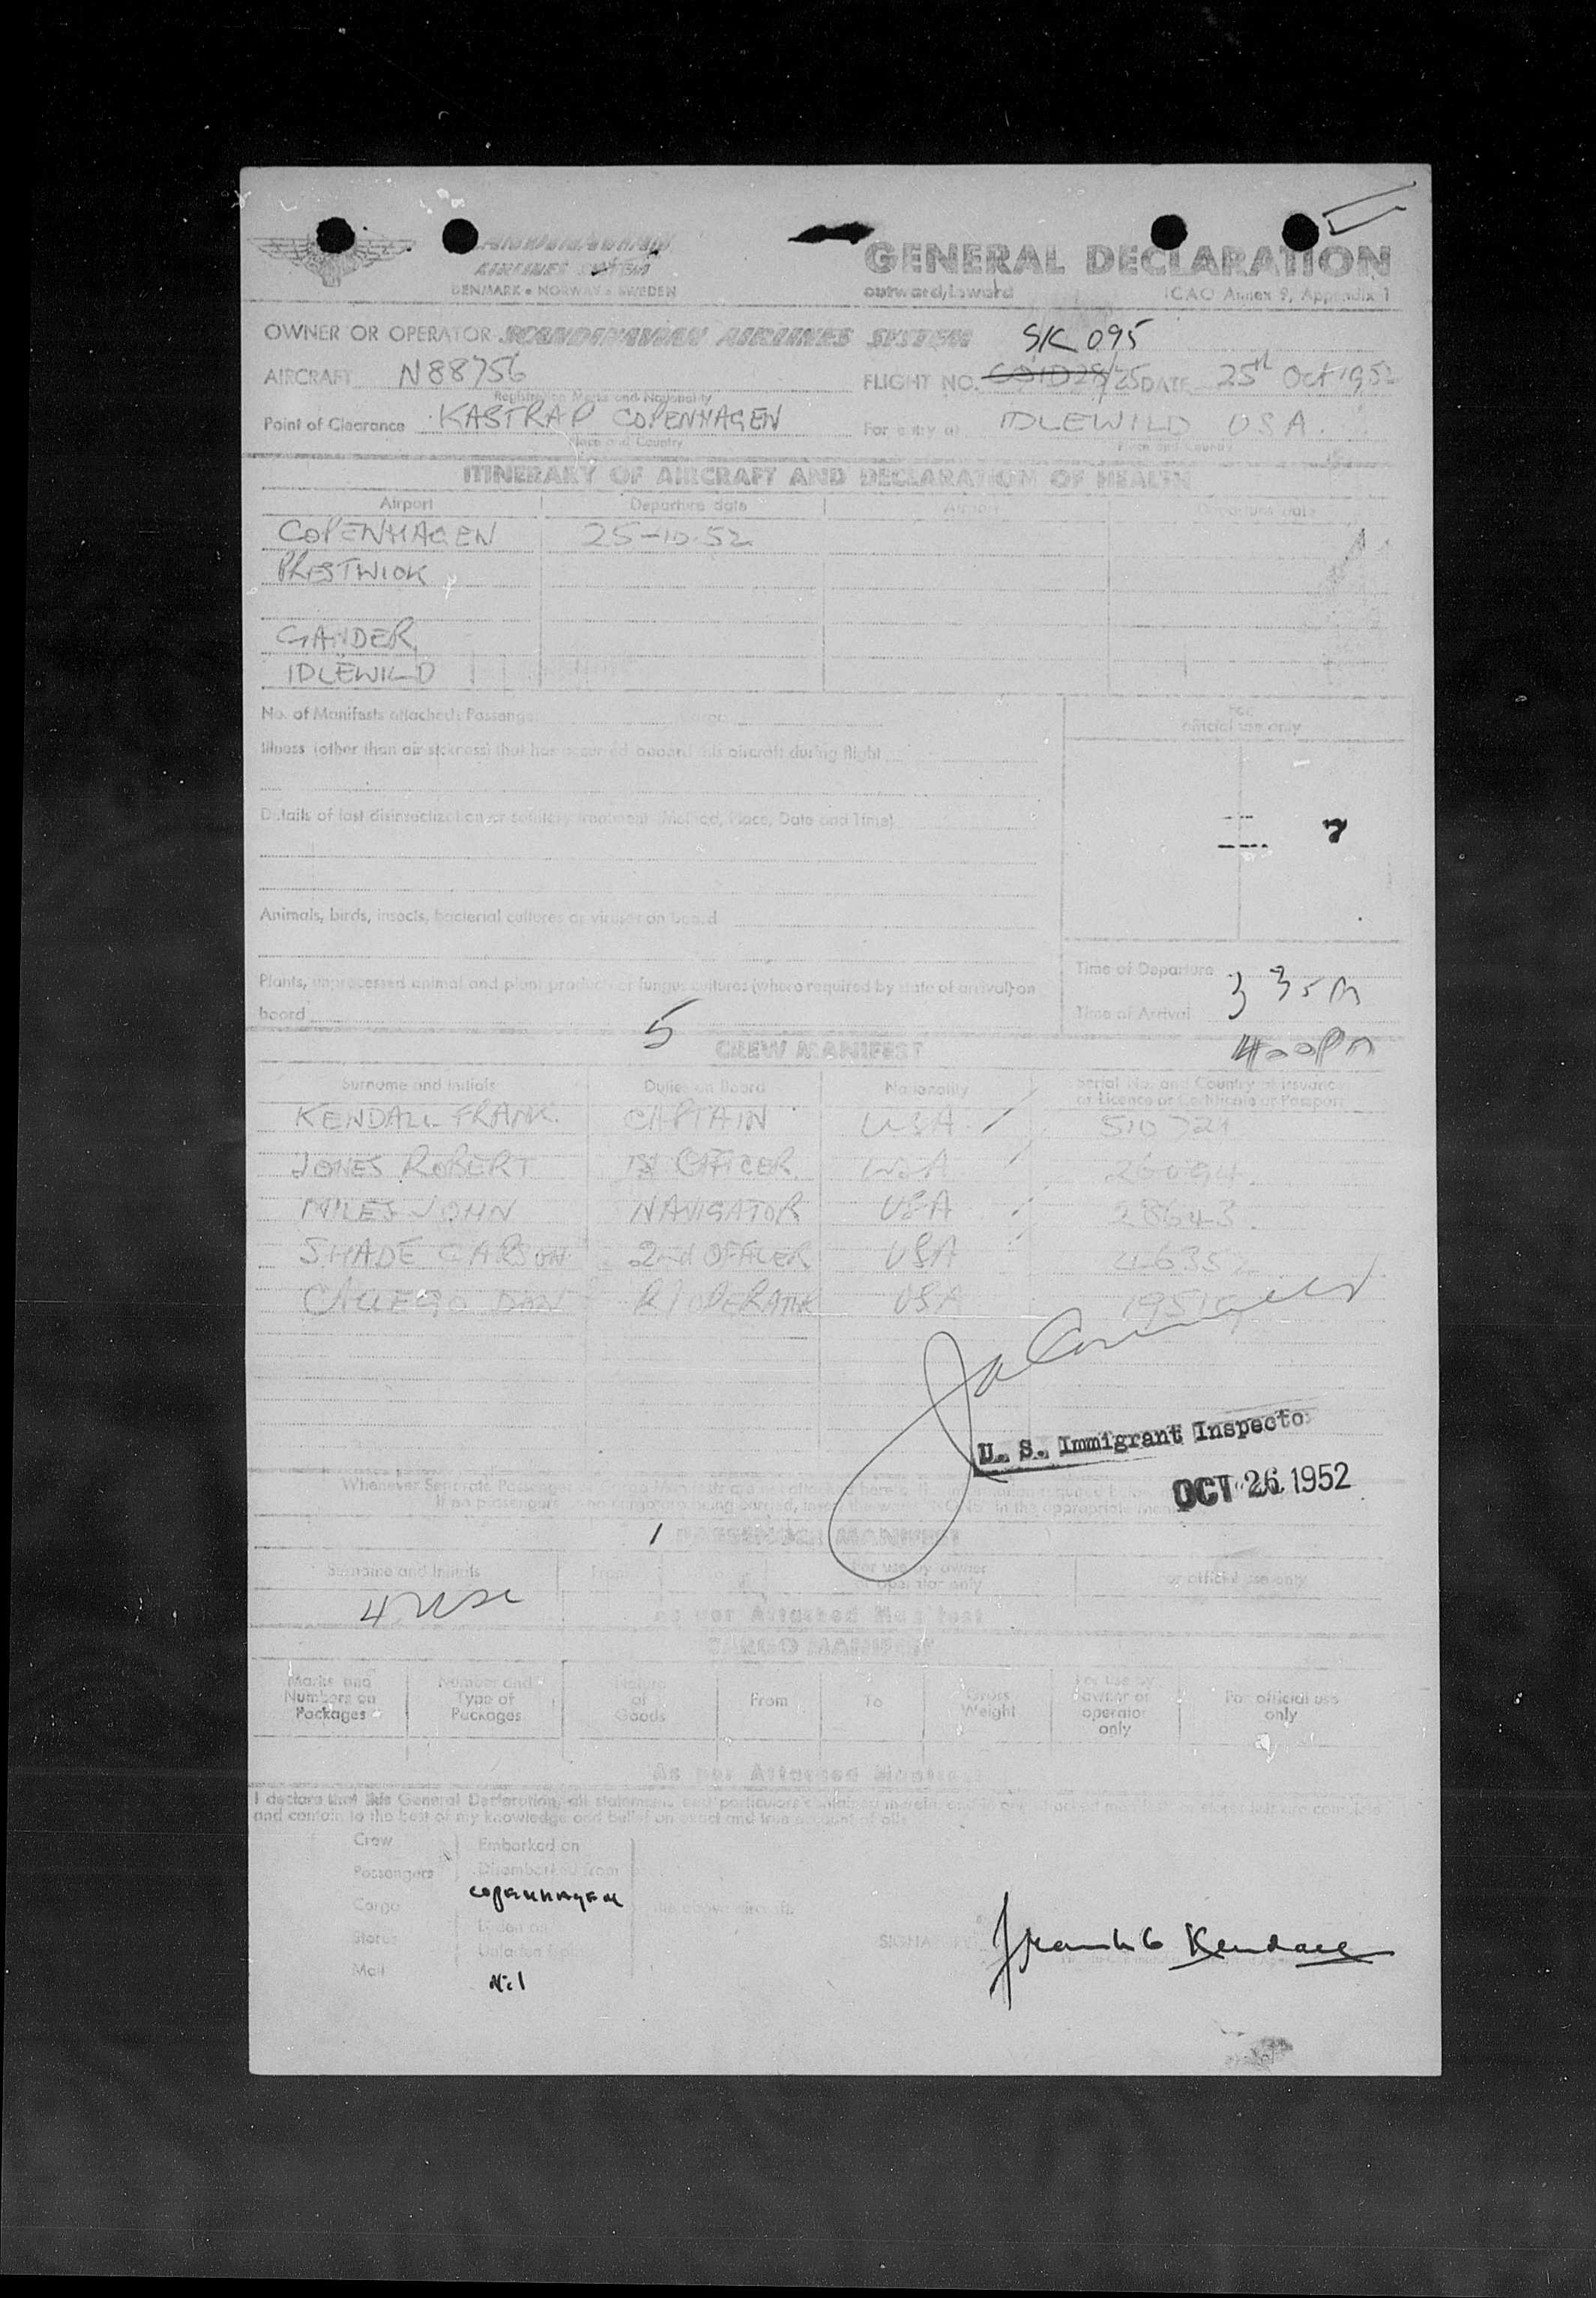 SCANDINAVIAN
AIRLINES SYSTEM
DENMARK • NORWAY • SWEDEN
GENERAL DECLARATION
outward/inward ICAO Annex 9, Appendix 1
OWNER OR OPERATOR SCANDINAVIAN AIRLINES SYSTEM SK 095
AIRCRAFT N88756 FLIGHT NO. /25 DATE 25th Oct 1952
Registration Marks and Nationality
Point of Clearance KASTRAP COPENHAGEN For entry at IDLEWILD USA.
Place and Country Place and Country
ITINERARY OF AIRCRAFT AND DECLARATION OF HEALTH
Airport Departure date Airport Departure date
COPENHAGEN 25-10-52
PRESTWICK
GANDER
IDLEWILD
No. of Manifests attached: Passenger Cargo
For
official use only
Illness (other than air sickness) that has occurred aboard this aircraft during flight
Details of last disinsectization or sanitary treatment (Method, Place, Date and Time)
Animals, birds, insects, bacterial cultures or viruses on board
Time of Departure
Plants, unprocessed animal and plant products or fungus cultures (where required by state of arrival) on
board
Time of Arrival
4 00 PM
5
CREW MANIFEST
Surname and Initials Duties on Board Nationality Serial No. and Country of Issuance
of Licence or Certificate or Passport
KENDALL FRANK. CAPTAIN USA 510721
JONES ROBERT 1st OFFICER USA 26094
MILES JOHN NAVIGATOR USA 28643.
SHADE CARSON 2nd OFFICER USA
DAN R/OPERATOR USA
U. S. Immigrant Inspector
OCT 26 1952
Whenever Separate Passenger
If no passengers no cargo are being carried, insert the word "NONE" in the appropriate
1
PASSENGER MANIFEST
Surname and Initials From To For use by owner
or operator only
For official use only
4 USC
As per Attached Manifest
CARGO MANIFEST
Marks and
Numbers on
Packages
Number and
Type of
Packages
Nature
of
Goods
From
To
Gross
Weight
For use by
owner or
operator
only
For official use
only
As per Attached Manifest
I declare that this General Declaration, all statements and particulars contained therein, and in are complete
and contain to the best of my knowledge and belief an exact and true account of all:
Crew Embarked on
Passengers Disembarked from
COPENHAGEN
Cargo the above aircraft.
Stores
Mail
Nil
SIGNATURE Frank G Kendall